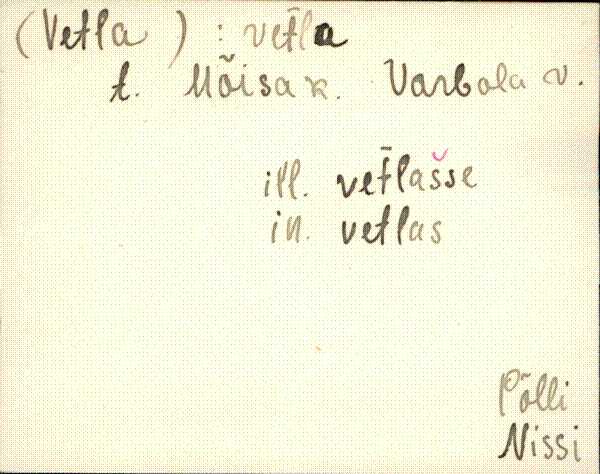 (Vetla) : vet̄la
t. Mõisak. Varbola v.
ill. vet̄lašse
in. vetlas
Põlli
Nissi